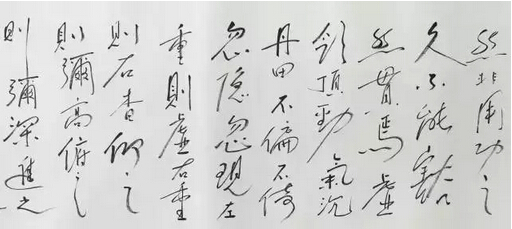 然非用功之
久不能豁
然貫焉虛
領頂勁氣沉
丹田不偏不倚
忽隱忽現左
重則虛右重
則右杳仰之
則彌高俯之
則彌深進之